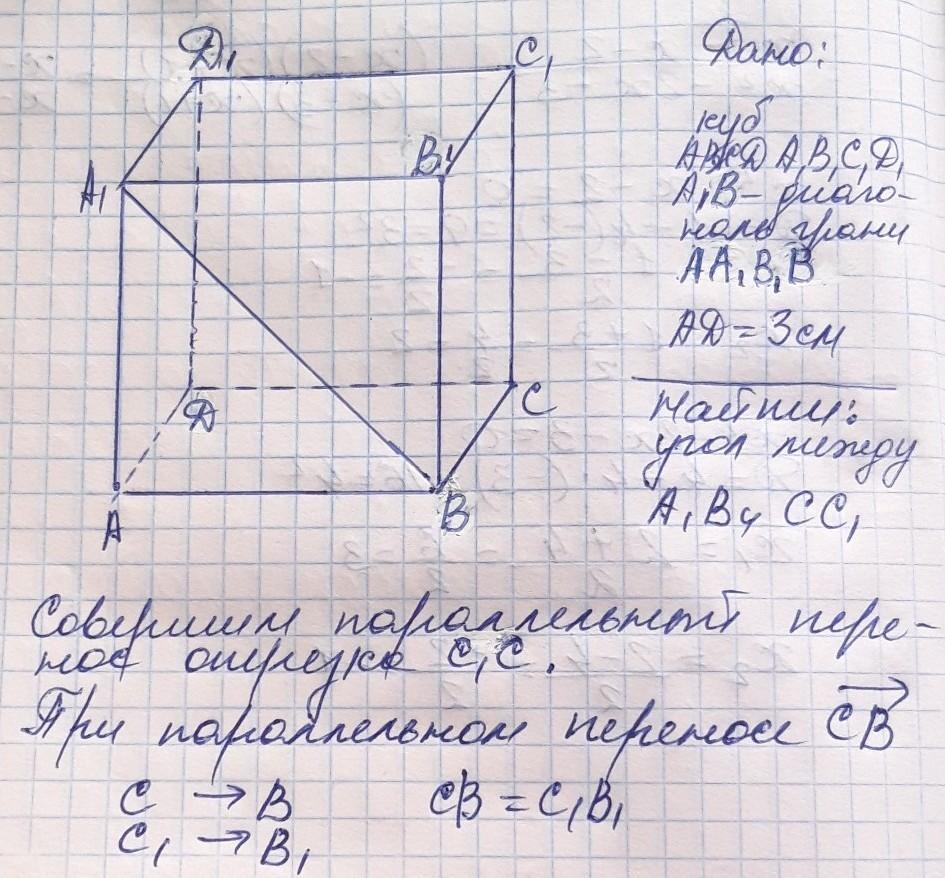 D₁
C₁
A₁
B₁
D
C
A
B
Дано:
куб
ABCD A₁B₁C₁D₁
A₁B – диаго-
наль грани
AA₁B₁B
AD = 3 см
Найти:
угол между
A₁B и CC₁
Совершим параллельный пере-
нос отрезка C₁C.
При параллельном переносе CB
C → B CB = C₁B₁
C₁ → B₁